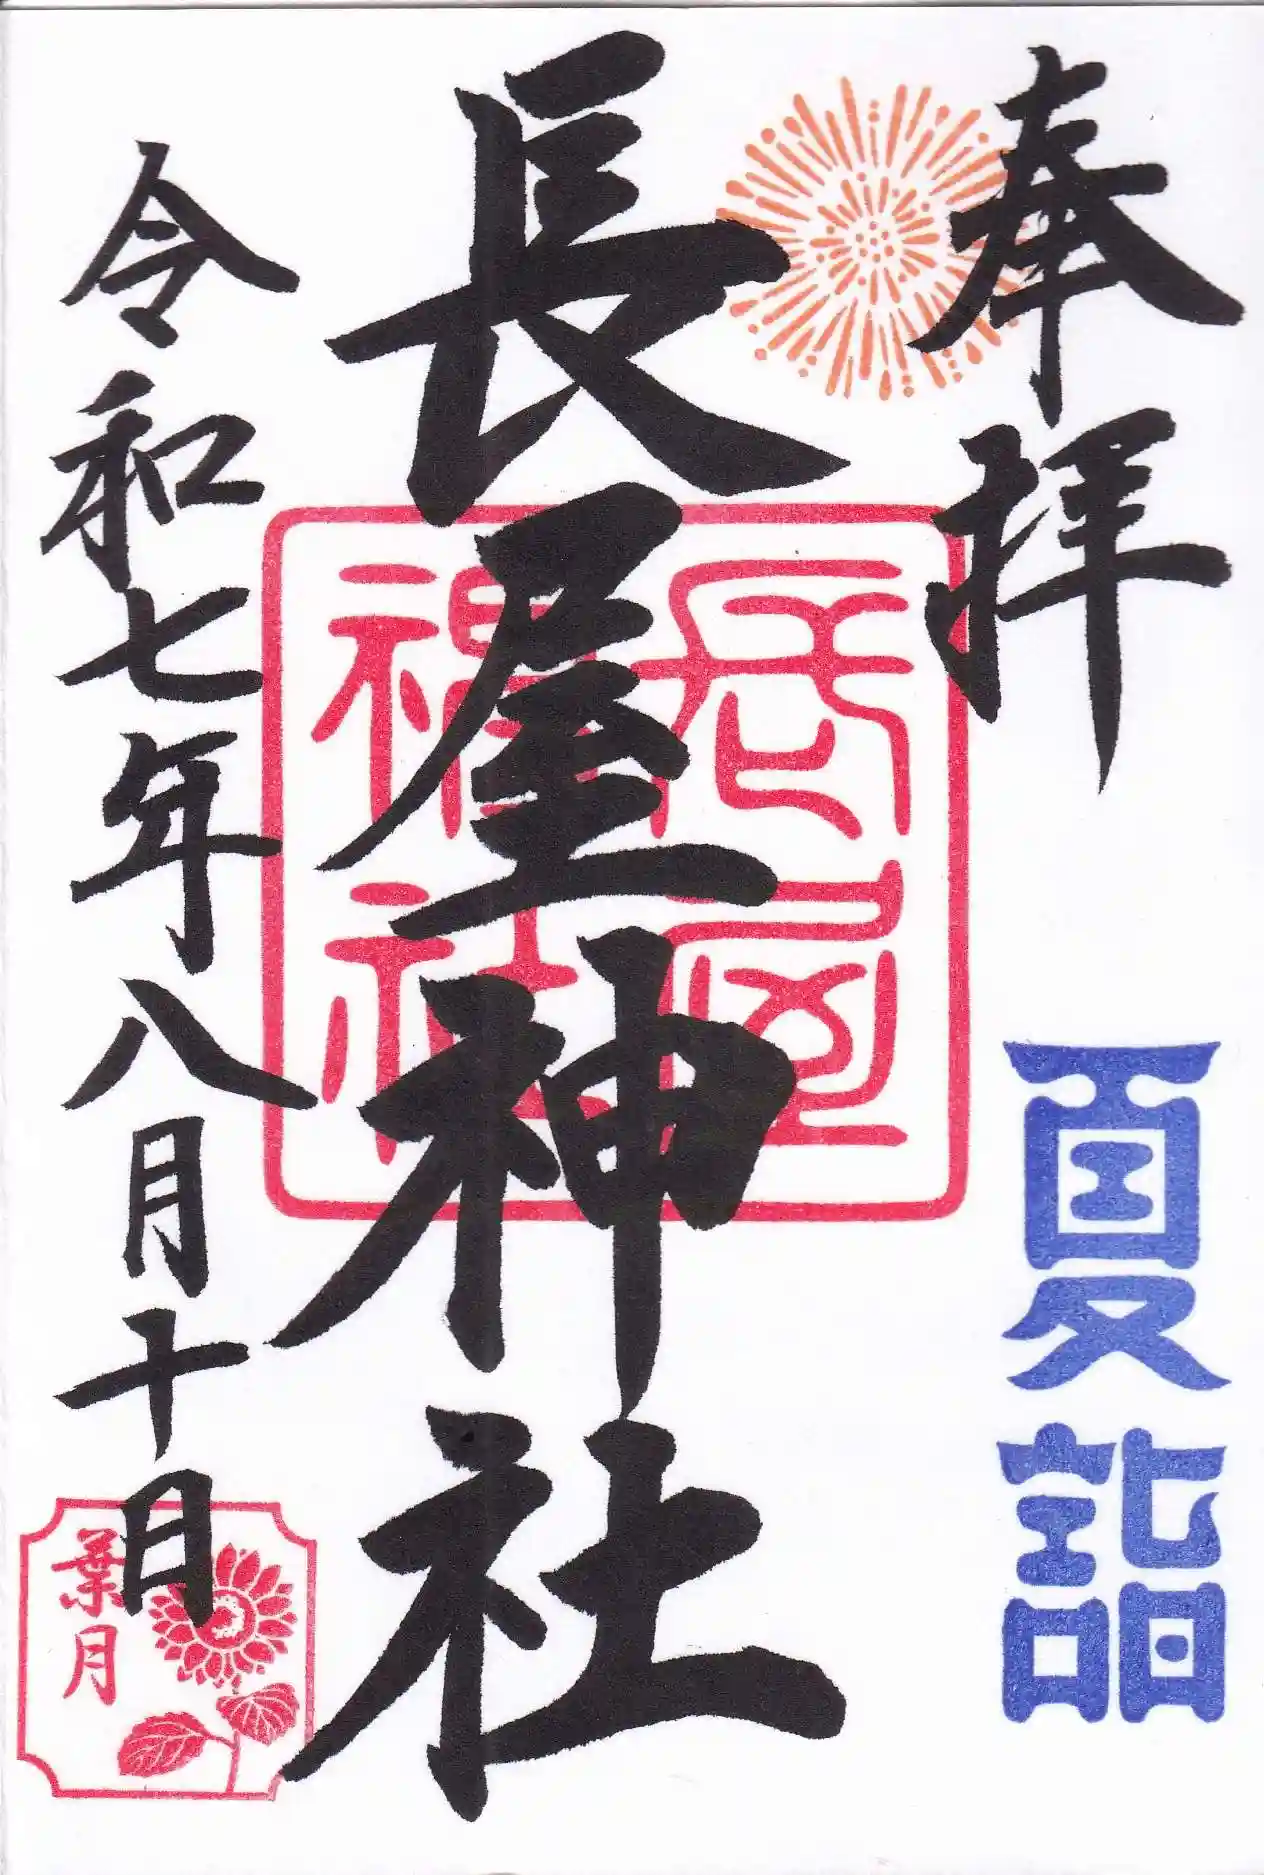 奉拝
夏詣
長屋神社
長屋
神社
令和七年八月十日
葉月